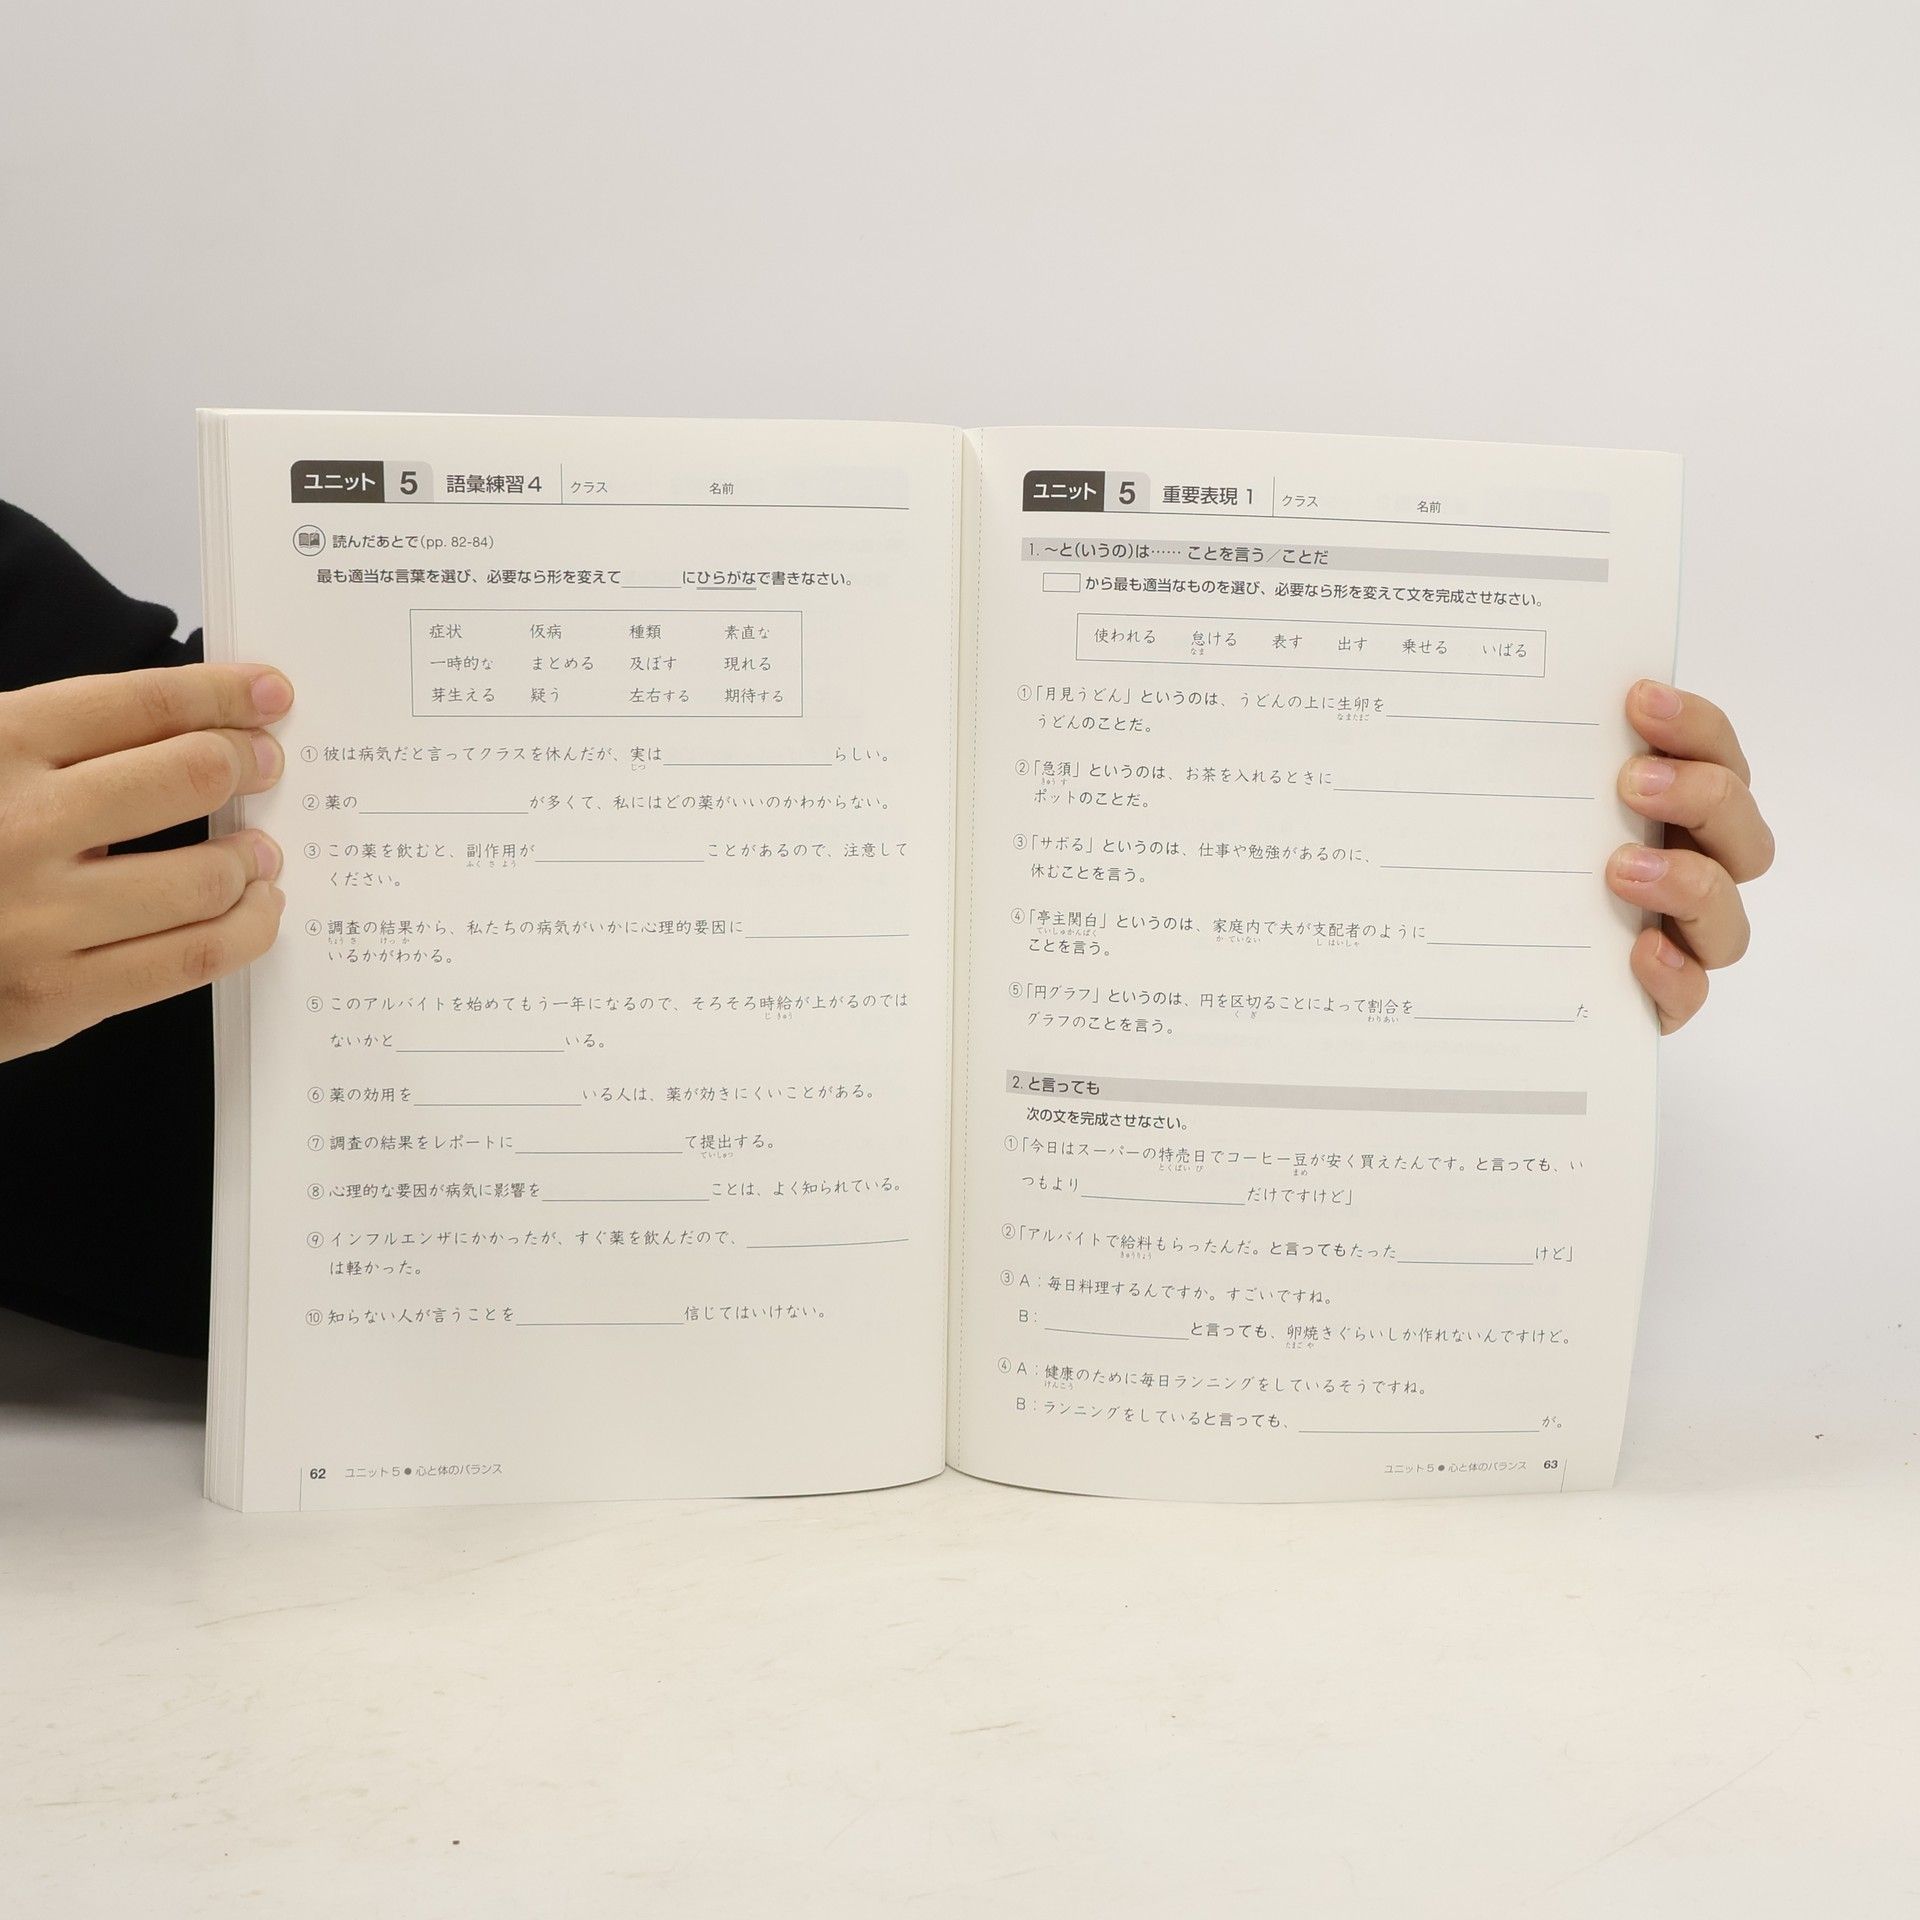 ユニット 5 語彙練習4 クラス 名前
読んだあとで(pp. 82-84)
最も適当な言葉を選び、必要なら形を変えて＿＿＿にひらがなで書きなさい。
症状 仮病 種類 素直な
一時的な まとめる 及ぼす 現れる
芽生える 疑う 左右する 期待する
①彼は病気だと言ってクラスを休んだが、実は＿＿＿らしい。
じつ
②薬の＿＿＿が多くて、私にはどの薬がいいのかわからない。
③この薬を飲むと、副作用が＿＿＿ことがあるので、注意して
ふくさよう
ください。
④調査の結果から、私たちの病気がいかに心理的要因に＿＿＿
ちょうさ けっか
いるかがわかる。
⑤このアルバイトを始めてもう一年になるので、そろそろ時給が上がるのでは
じきゅう
ないかと＿＿＿いる。
⑥薬の効用を＿＿＿いる人は、薬が効きにくいことがある。
⑦調査の結果をレポートに＿＿＿て提出する。
ていしゅつ
⑧心理的な要因が病気に影響を＿＿＿ことは、よく知られている。
⑨インフルエンザにかかったが、すぐ薬を飲んだので、＿＿＿
は軽かった。
⑩知らない人が言うことを＿＿＿信じてはいけない。
62 ユニット5●心と体のバランス
ユニット 5 重要表現1 クラス 名前
1. ～と(いうの)は…… ことを言う／ことだ
□から最も適当なものを選び、必要なら形を変えて文を完成させなさい。
使われる 怠ける 表す 出す 乗せる いばる
なま
①「月見うどん」というのは、うどんの上に生卵を＿＿＿
なまたまご
うどんのことだ。
②「急須」というのは、お茶を入れるときに＿＿＿
きゅうす
ポットのことだ。
③「サボる」というのは、仕事や勉強があるのに、＿＿＿
休むことを言う。
④「亭主関白」というのは、家庭内で夫が支配者のように＿＿＿
ていしゅかんぱく かていない しはいしゃ
ことを言う。
⑤「円グラフ」というのは、円を区切ることによって割合を＿＿＿た
くぎ わりあい
グラフのことを言う。
2. と言っても
次の文を完成させなさい。
①「今日はスーパーの特売日でコーヒー豆が安く買えたんです。と言っても、い
とくばいび まめ
つもより＿＿＿だけですけど」
②「アルバイトで給料もらったんだ。と言ってもたった＿＿＿けど」
きゅうりょう
③A：毎日料理するんですか。すごいですね。
B：＿＿＿と言っても、卵焼きぐらいしか作れないんですけど。
たまごや
④A：健康のために毎日ランニングをしているそうですね。
けんこう
B：ランニングをしていると言っても、＿＿＿が。
ユニット5●心と体のバランス 63